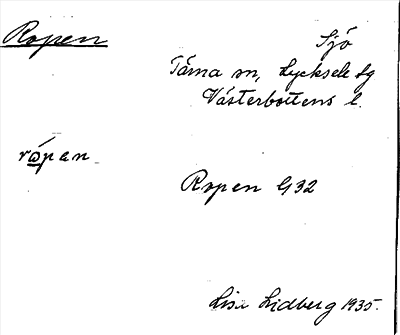 Ropen
Sjö
Tärna sn, Lycksele lg
Västerbottens l.
rópan
Ropen G32
Lisa Lidberg 1935.